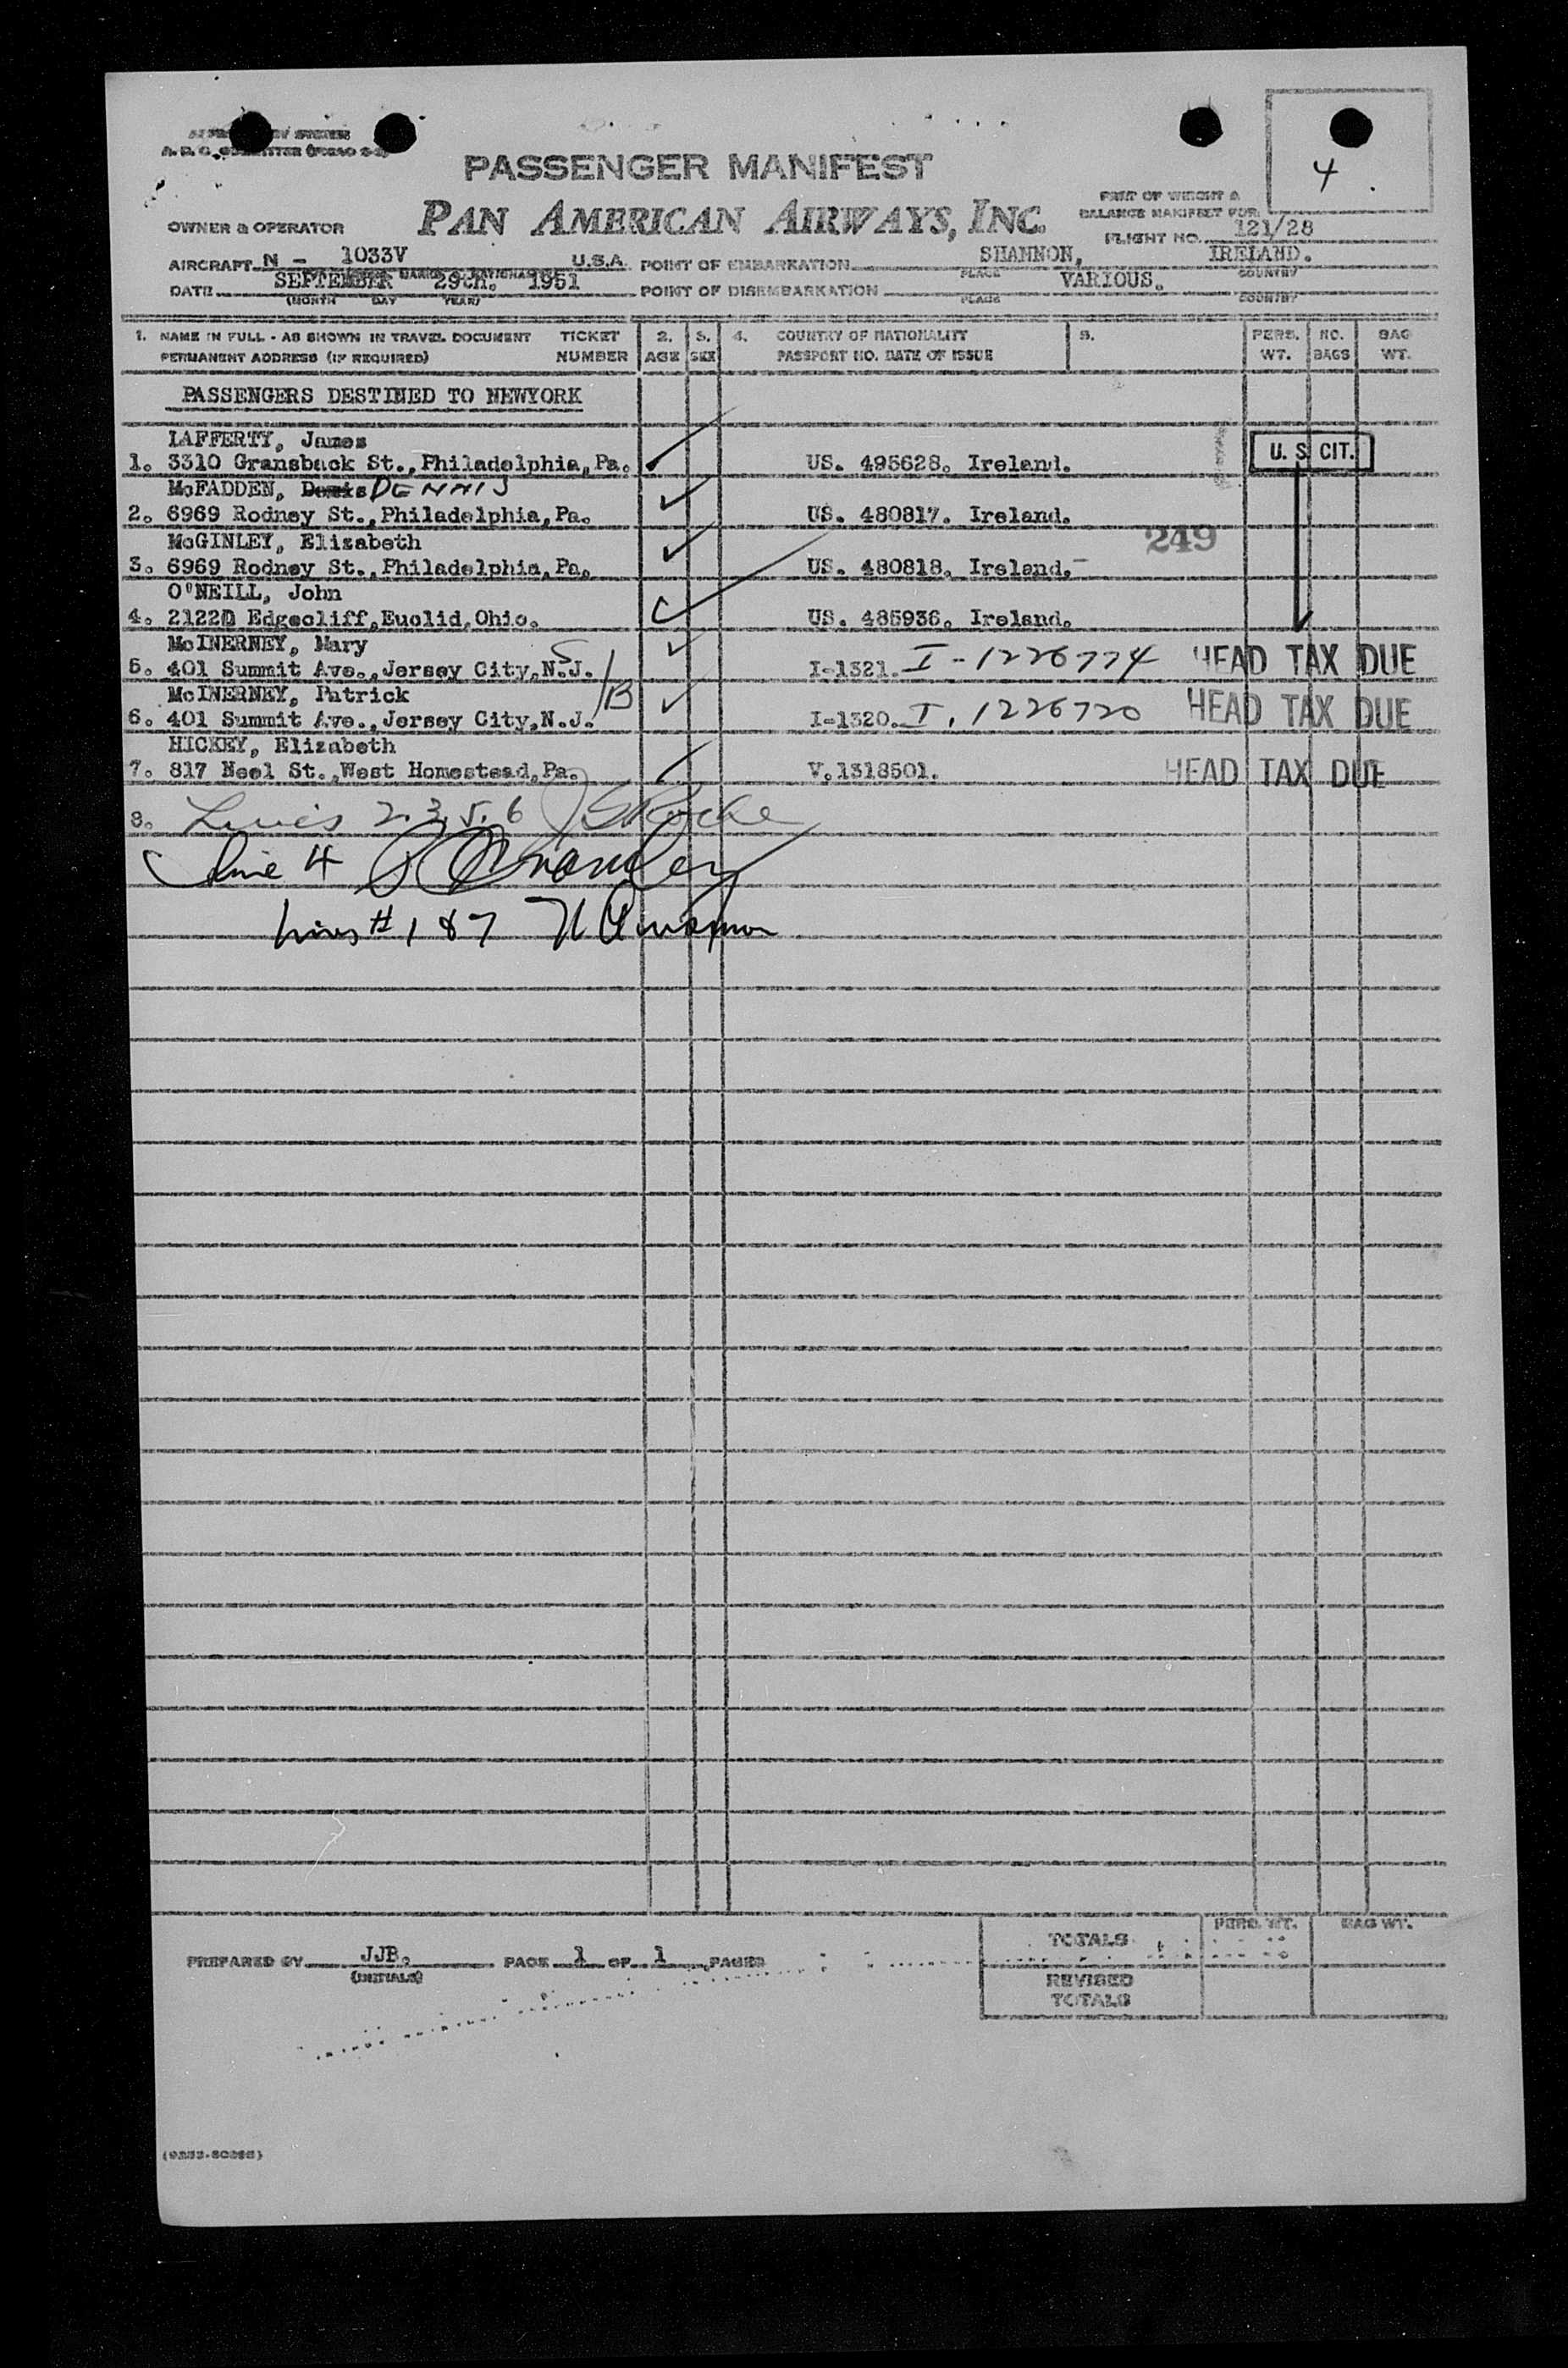 4
PASSENGER MANIFEST
PART OF WEIGHT &
BALANCE MANIFEST FOR
OWNER & OPERATOR PAN AMERICAN AIRWAYS, INC. FLIGHT NO. 121/28
AIRCRAFT N - 1033V U.S.A. POINT OF EMBARKATION SHANNON, IRELAND.
PLACE COUNTRY
DATE SEPTEMBER 29th. 1951 POINT OF DISEMBARKATION VARIOUS.
(MONTH DAY YEAR) PLACE COUNTRY
1. NAME IN FULL - AS SHOWN IN TRAVEL DOCUMENT TICKET 2. 3. 4. COUNTRY OF NATIONALITY 5. PERS. NO. BAG
PERMANENT ADDRESS (IF REQUIRED) NUMBER AGE SEX PASSPORT NO. DATE OF ISSUE WT. BAGS WT.
PASSENGERS DESTINED TO NEWYORK
LAFFERTY, James
1. 3310 Gransback St., Philadelphia, Pa. US. 495628. Ireland. U. S. CIT.
McFADDEN, DENNIS
2. 6969 Rodney St., Philadelphia, Pa. US. 480817. Ireland.
McGINLEY, Elizabeth 249
3. 6969 Rodney St., Philadelphia, Pa. US. 480818. Ireland.
O'NEILL, John
4. 2122D Edgecliff, Euclid, Ohio. US. 485936. Ireland.
McINERNEY, Mary
5. 401 Summit Ave., Jersey City, N.J. I-1321. I-1226774 HEAD TAX DUE
McINERNEY, Patrick
6. 401 Summit Ave., Jersey City, N.J. I-1320. I. 1226720 HEAD TAX DUE
HICKEY, Elizabeth
7. 817 Neel St., West Homestead, Pa. V. 1318501. HEAD TAX DUE
8. Lines 2. 3. 5. 6 J S Roche
Line 4
Lines # 1 & 7
PREPARED BY JJB. PAGE 1 OF 1 PAGES
(INITIALS)
PERS. WT. BAG WT.
TOTALS
REVISED
TOTALS